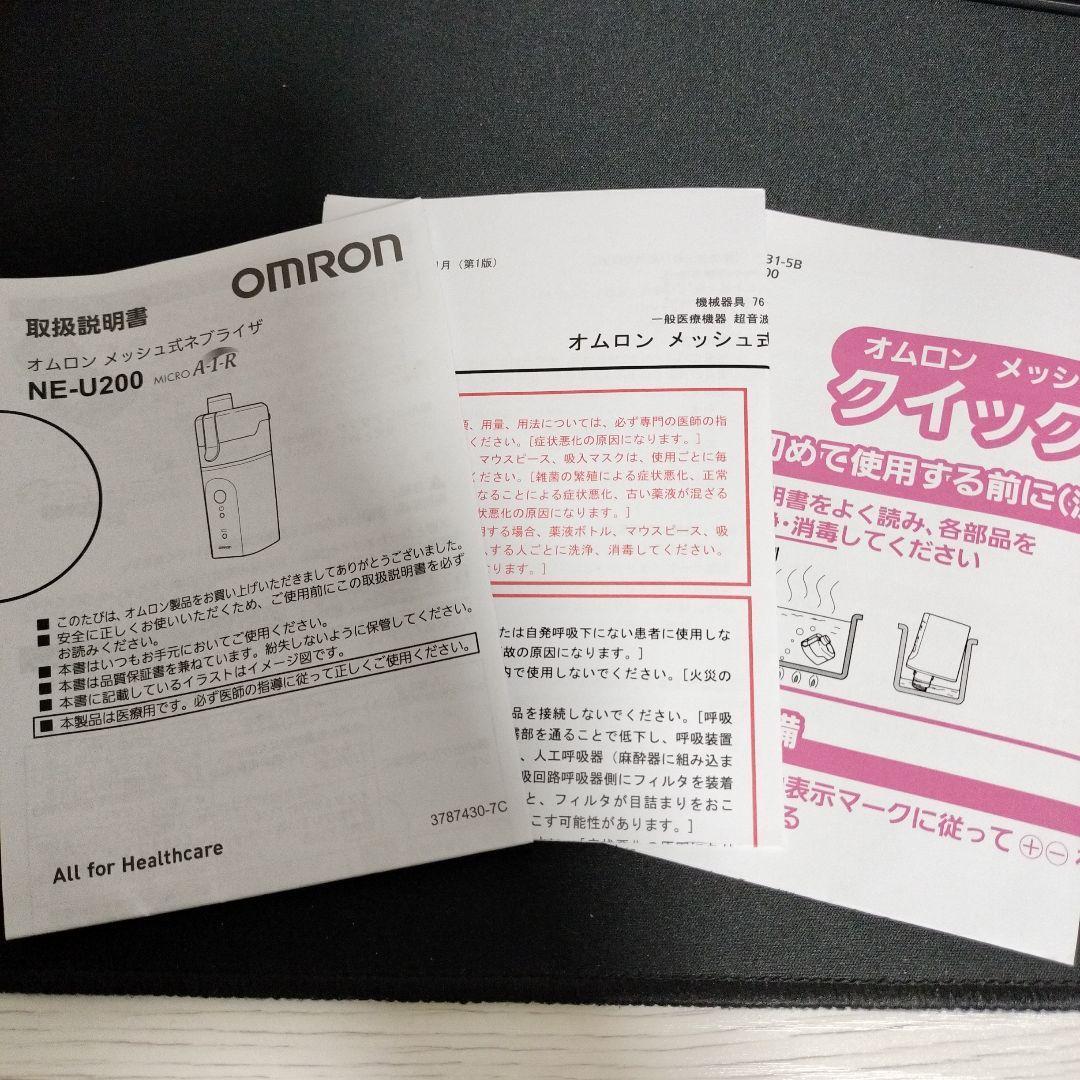 OMRON
取扱説明書
オムロン メッシュ式ネブライザ
NE-U200 MICRO A-I-R
■ このたびは、オムロン製品をお買い上げいただきましてありがとうございました。
■ 安全に正しくお使いいただくため、ご使用前にこの取扱説明書を必ず
お読みください。
■ 本書はいつもお手元においてご使用ください。
■ 本書は品質保証書を兼ねています。紛失しないように保管してください。
■ 本書に記載しているイラストはイメージ図です。
■ 本製品は医療用です。必ず医師の指導に従って正しくご使用ください。
3787430-7C
All for Healthcare
月（第1版）
機械器具 76
一般医療機器 超音波
オムロン メッシュ式
、用量、用法については、必ず専門の医師の指
ください。［症状悪化の原因になります。］
マウスピース、吸入マスクは、使用ごとに毎
ください。［雑菌の繁殖による症状悪化、正常
なることによる症状悪化、古い薬液が混ざる
状悪化の原因になります。］
用する場合、薬液ボトル、マウスピース、吸
する人ごとに洗浄、消毒してください。
ります。］
たは自発呼吸下にない患者に使用しな
故の原因になります。］
内で使用しないでください。［火災の
品を接続しないでください。［呼吸
部を通ることで低下し、呼吸装置
、人工呼吸器（麻酔器に組み込ま
吸回路呼吸器側にフィルタを装着
と、フィルタが目詰まりをおこ
こす可能性があります。］
31-5B
00
オムロン メッシ
クイック
初めて使用する前に
明書をよく読み、各部品を
・消毒してください
備
表示マークに従って⊕⊖
る